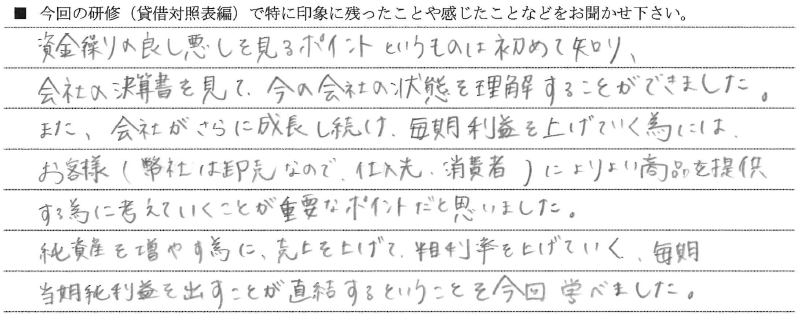 ■ 今回の研修（貸借対照表編）で特に印象に残ったことや感じたことなどをお聞かせ下さい。
資金繰りの良し悪しを見るポイントというものは初めて知り、
会社の決算書を見て、今の会社の状態を理解することができました。
また、会社がさらに成長し続け、毎期利益を上げていく為には、
お客様（弊社は卸売なので、仕入先、消費者）によりよい商品を提供
する為に考えていくことが重要なポイントだと思いました。
純資産を増やす為に、売上を上げて、粗利率を上げていく、毎期
当期純利益を出すことが直結するということを今回学べました。